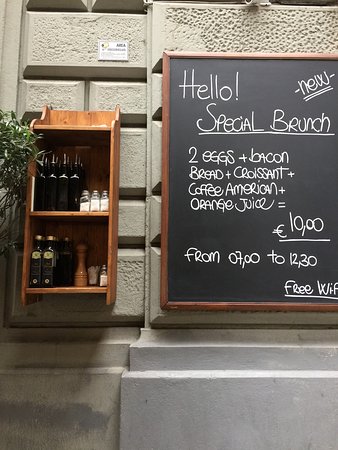 AREA
Hello!
-new-
Special Brunch
2 eggs + bacon
Bread + croissant +
Coffee American +
Orange Juice =
€ 10,00
From 07,00 to 12,30
Free WiF